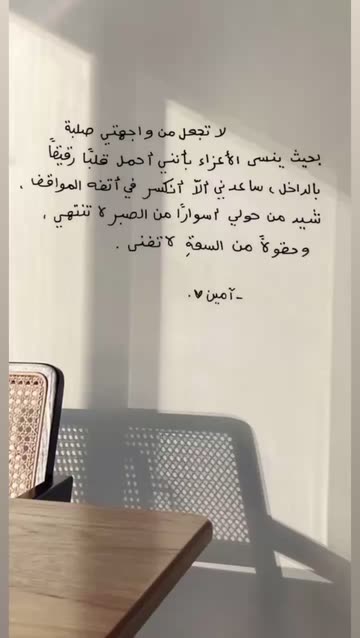 لا تجعل من واجهتي صلبة
بحيث ينسى الأعزاء بأنني أحمل قلبًا رقيقًا
بالداخل، ساعدني ألا أنكسر في أتفه المواقف،
تشيد من حولي أسوارًا من الصبر لا تنتهي،
وحقولاً من السعةِ لا تفنى.
-آمين♥.